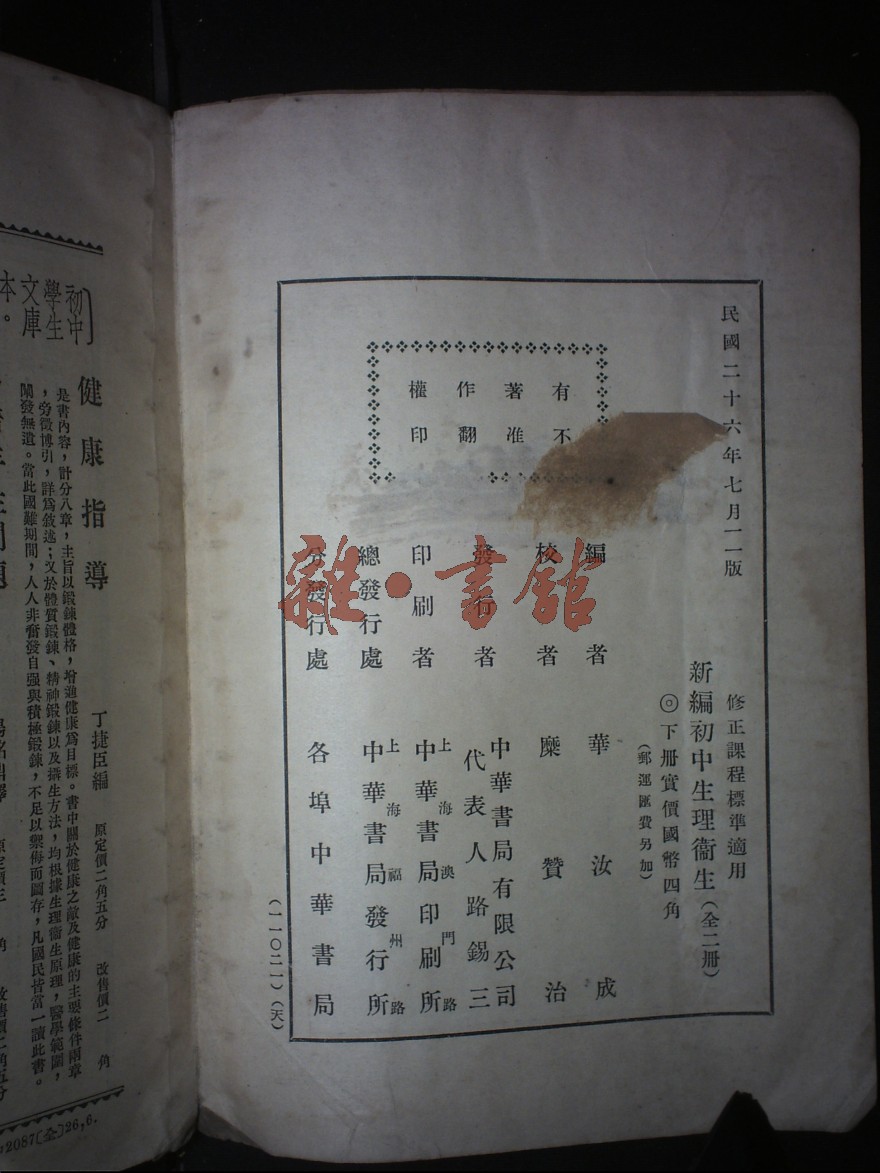 民國二十六年七月一一版
修正課程標準適用
新編初中生理衞生(全二冊)
◎下册實價國幣四角
(郵運匯費另加)
有著作權
不准翻印
編者 華汝成
校者 糜贊治
發行者 中華書局有限公司
代表人路錫三
印刷者 上海澳門路
中華書局印刷所
總發行處 上海福州路
中華書局發行所
分發行處 各埠中華書局
(一一〇二一)(天)
雜·書館
初中學生文庫
本。
健康指導
丁捷臣編 原定價二角五分 改售價二角
是書內容,計分八章,主旨以鍛鍊體格,增適健康爲目標。書中關於健康之敵及健康的主要條件兩章
,旁徵博引,詳爲敘述;又於體質鍛鍊、精神鍛鍊以及攝生方法,均根據生理衞生原理,醫學範圍,
闡發無遺。當此國難期間,人人非奮發自强與積極鍛鍊,不足以禦侮而圖存,凡國民皆當一讀此書。
2087(全)26,6.